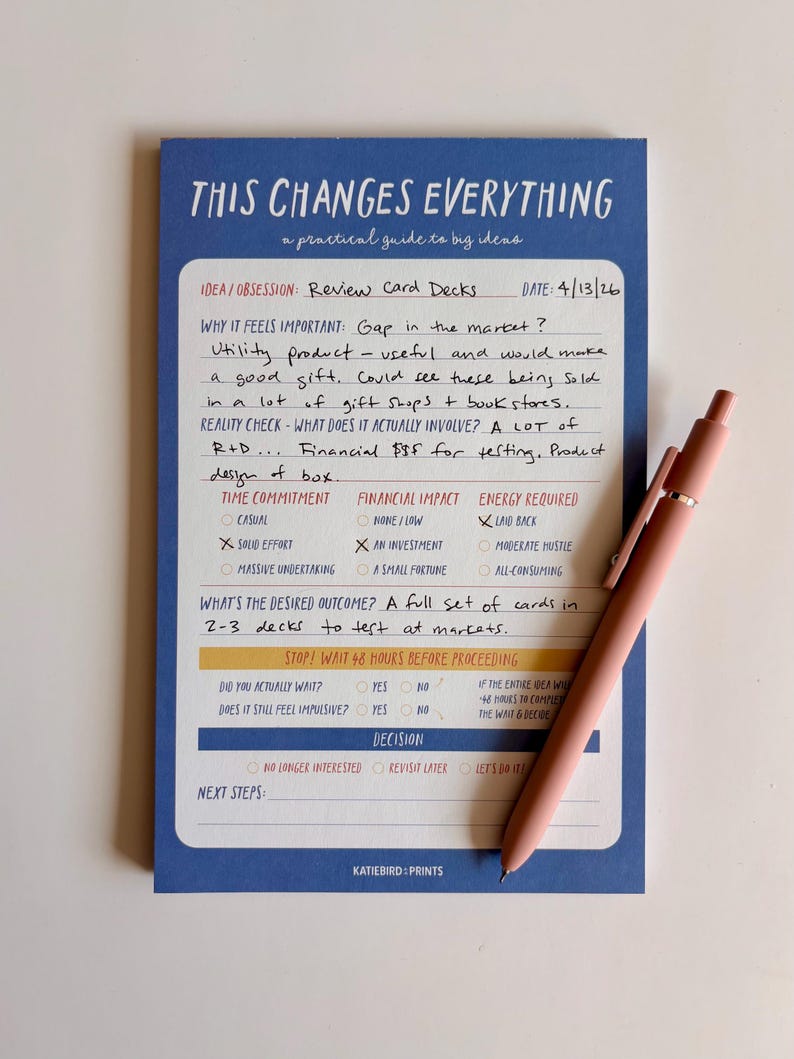 THIS CHANGES EVERYTHING
a practical guide to big ideas
IDEA / OBSESSION: Review Card Decks DATE: 4/13/26
WHY IT FEELS IMPORTANT: Gap in the market?
Utility product - useful and would make
a good gift. Could see these being sold
in a lot of gift shops + book stores.
REALITY CHECK - WHAT DOES IT ACTUALLY INVOLVE? A LOT of
R+D... Financial $$$ for testing. Product
design of box.
TIME COMMITMENT FINANCIAL IMPACT ENERGY REQUIRED
CASUAL NONE / LOW X LAID BACK
X SOLID EFFORT X AN INVESTMENT MODERATE HUSTLE
MASSIVE UNDERTAKING A SMALL FORTUNE ALL-CONSUMING
WHAT'S THE DESIRED OUTCOME? A full set of cards in
2-3 decks to test at markets.
STOP! WAIT 48 HOURS BEFORE PROCEEDING
DID YOU ACTUALLY WAIT? YES NO IF THE ENTIRE IDEA
DOES IT STILL FEEL IMPULSIVE? YES NO 48 HOURS TO
THE WAIT & DECIDE
DECISION
NO LONGER INTERESTED REVISIT LATER LET'S DO IT!
NEXT STEPS:
KATIEBIRD PRINTS